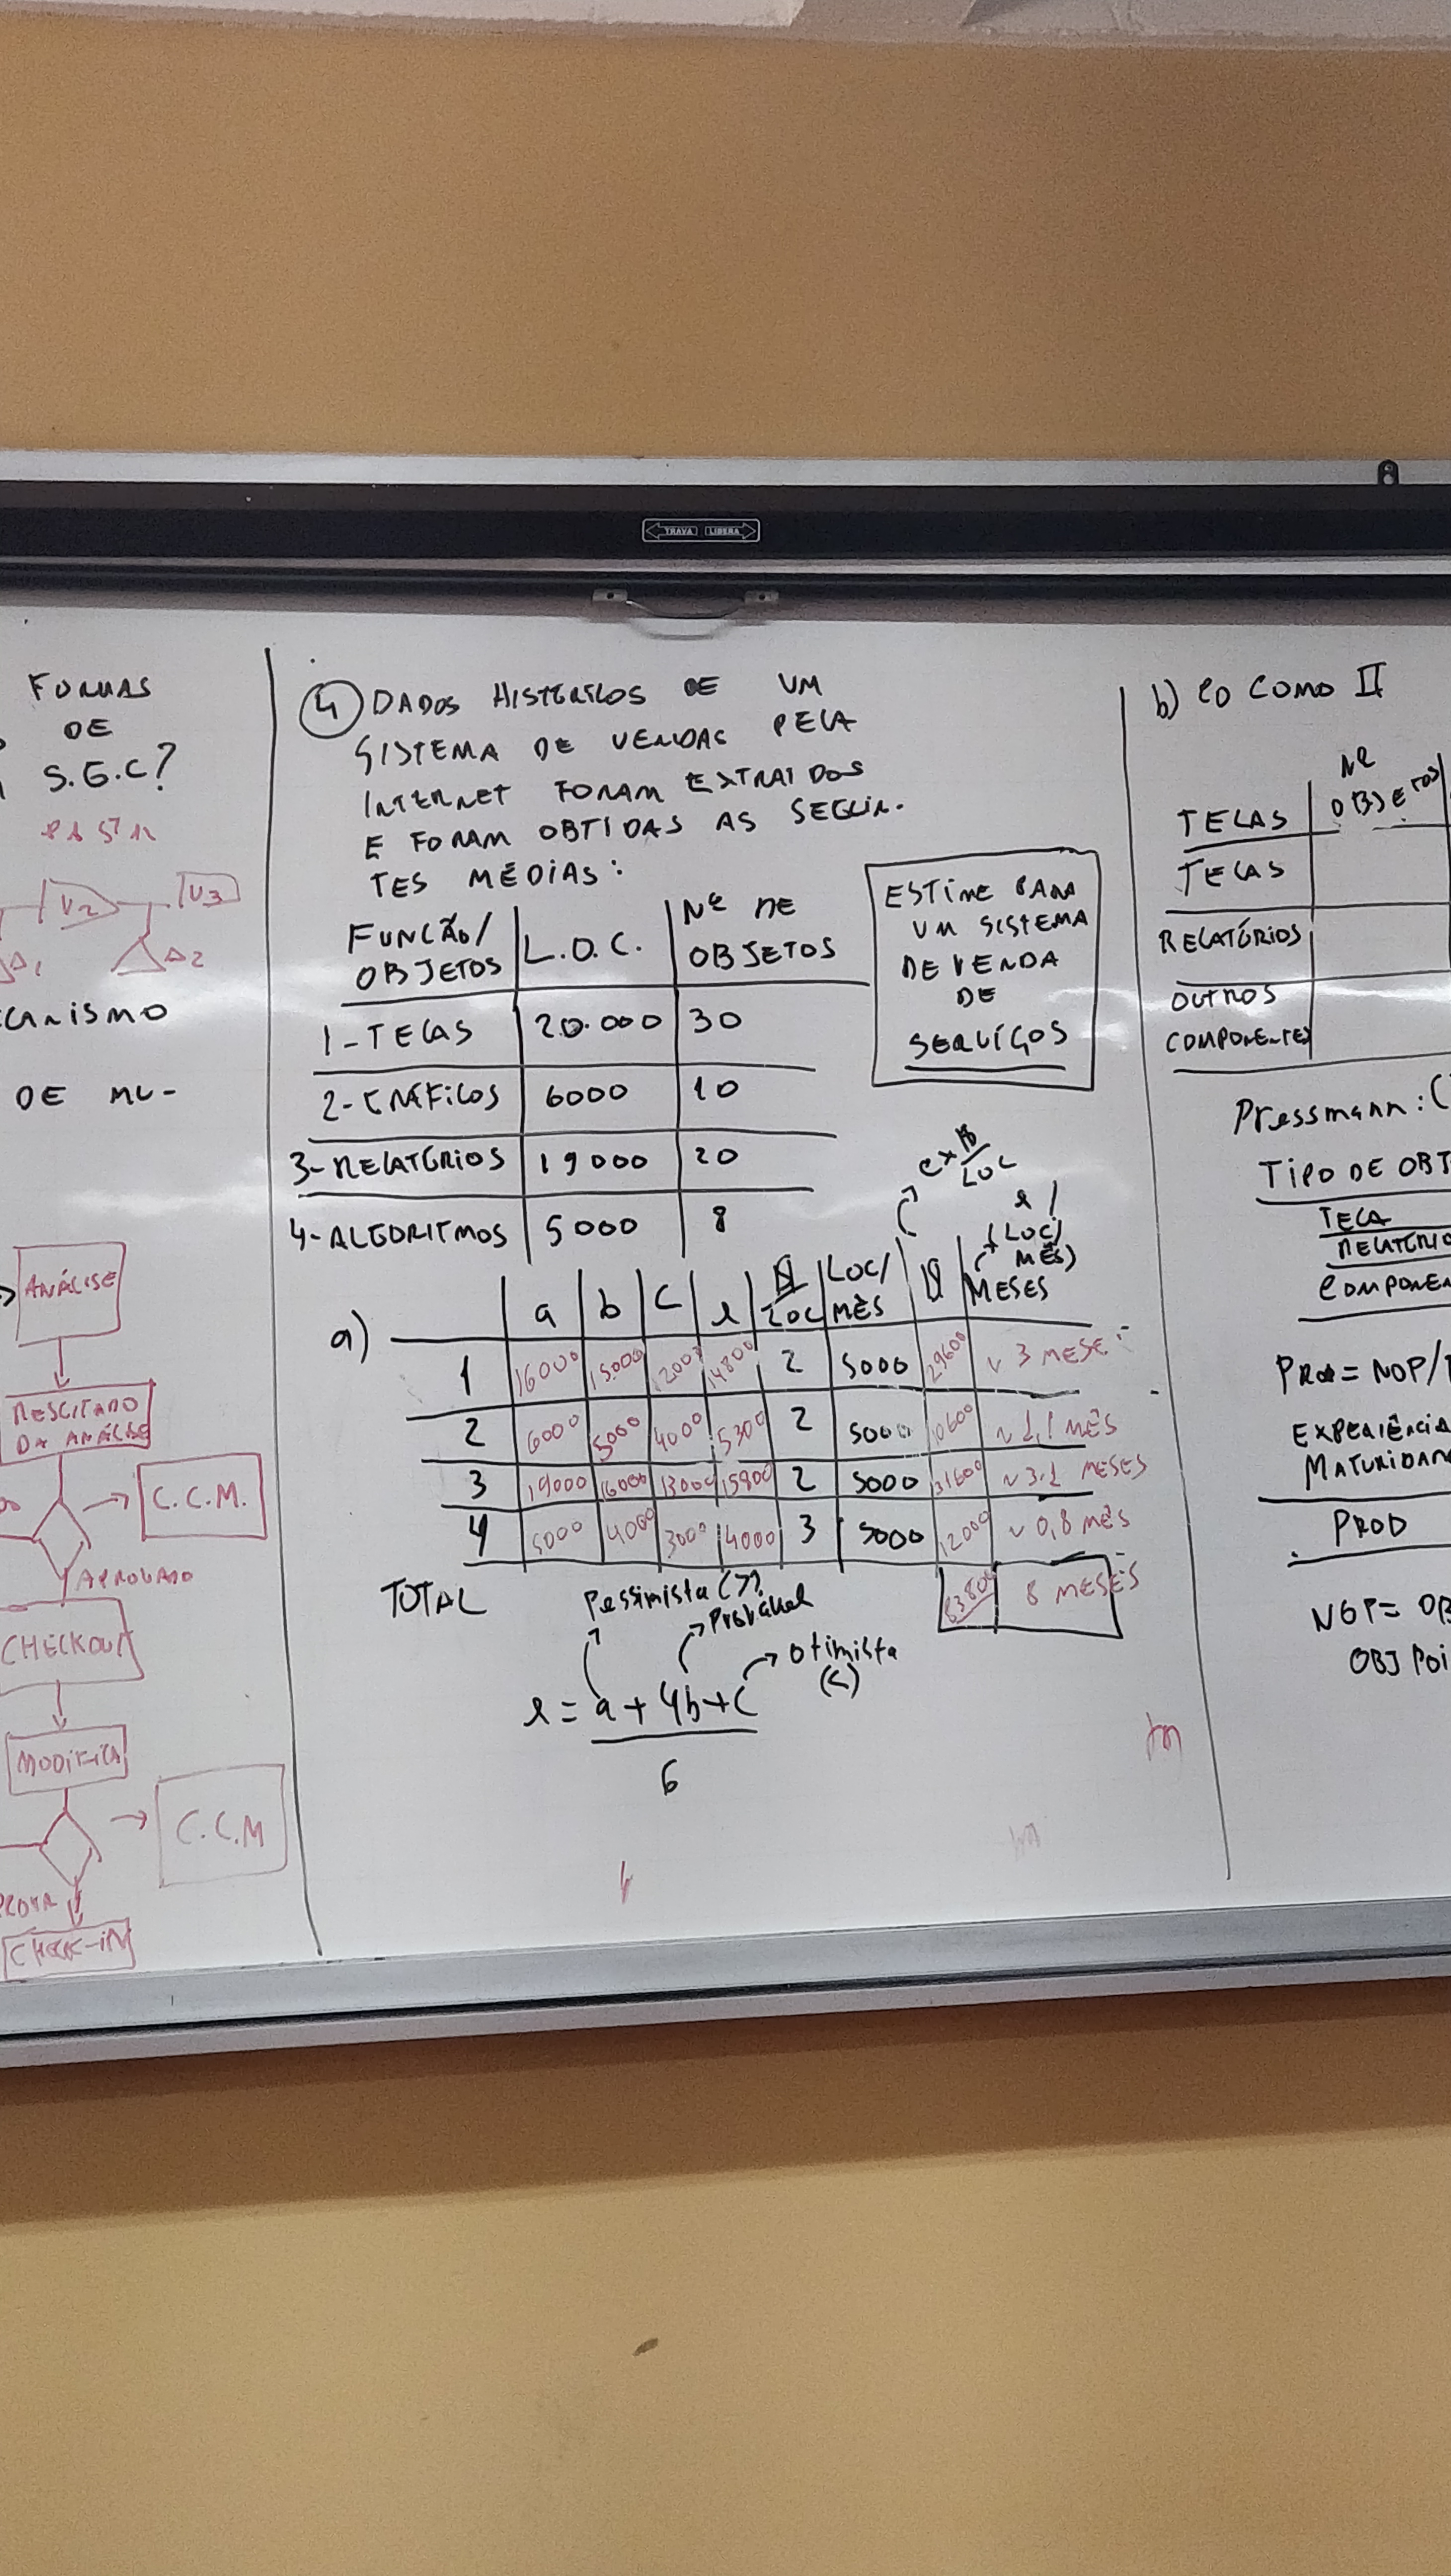 TRAVA LIBERA
FORMAS
DE
S.G.C?
V2 V3
Δ1 Δ2
DE MU-
ANÁLISE
RESULTADO
DA ANÁLISE
C.C.M.
APROVADO
CHECKOUT
MODIFICA
C.C.M
CHECK-IN
4 DADOS HISTÓRICOS DE UM
SISTEMA DE VENDAS PELA
INTERNET FORAM EXTRAIDOS
E FORAM OBTIDAS AS SEGUIN-
TES MÉDIAS:
FUNÇÃO/ OBJETOS | L.O.C. | Nº DE OBJETOS
1-TELAS | 20.000 | 30
2-GRÁFICOS | 6000 | 10
3-RELATÓRIOS | 19000 | 20
4-ALGORITMOS | 5000 | 8
ESTIME PARA
UM SISTEMA
DE VENDA
DE
SERVIÇOS
e x $/LOC
e / (LOC/ MÊS)
a)
a | b | c | e | $/LOC | LOC/MÊS | $ | MESES
1 | 16000 | 15000 | 12000 | 14800 | 2 | 5000 | 29600 | ~ 3 MESES
2 | 6000 | 5000 | 4000 | 5300 | 2 | 5000 | 10600 | ~ 1,1 MÊS
3 | 19000 | 16000 | 13000 | 15800 | 2 | 5000 | 31600 | ~ 3.1 MESES
4 | 5000 | 4000 | 3000 | 4000 | 3 | 5000 | 12000 | ~ 0,8 MÊS
TOTAL 83800 8 MESES
Pessimista (>)
Provável
Otimista
(<)
e = a + 4b + c
6
b) CO COMO II
TELAS | Nº OBJETOS
TELAS
RELATÓRIOS
OUTROS
COMPONENTES
Pressmann: (
TIPO DE OBJ
TELA
RELATÓRIO
COMPONEN
PROD = NOP/
EXPERIÊNCIA
MATURIDADE
PROD
NOP = OB
OBJ POI